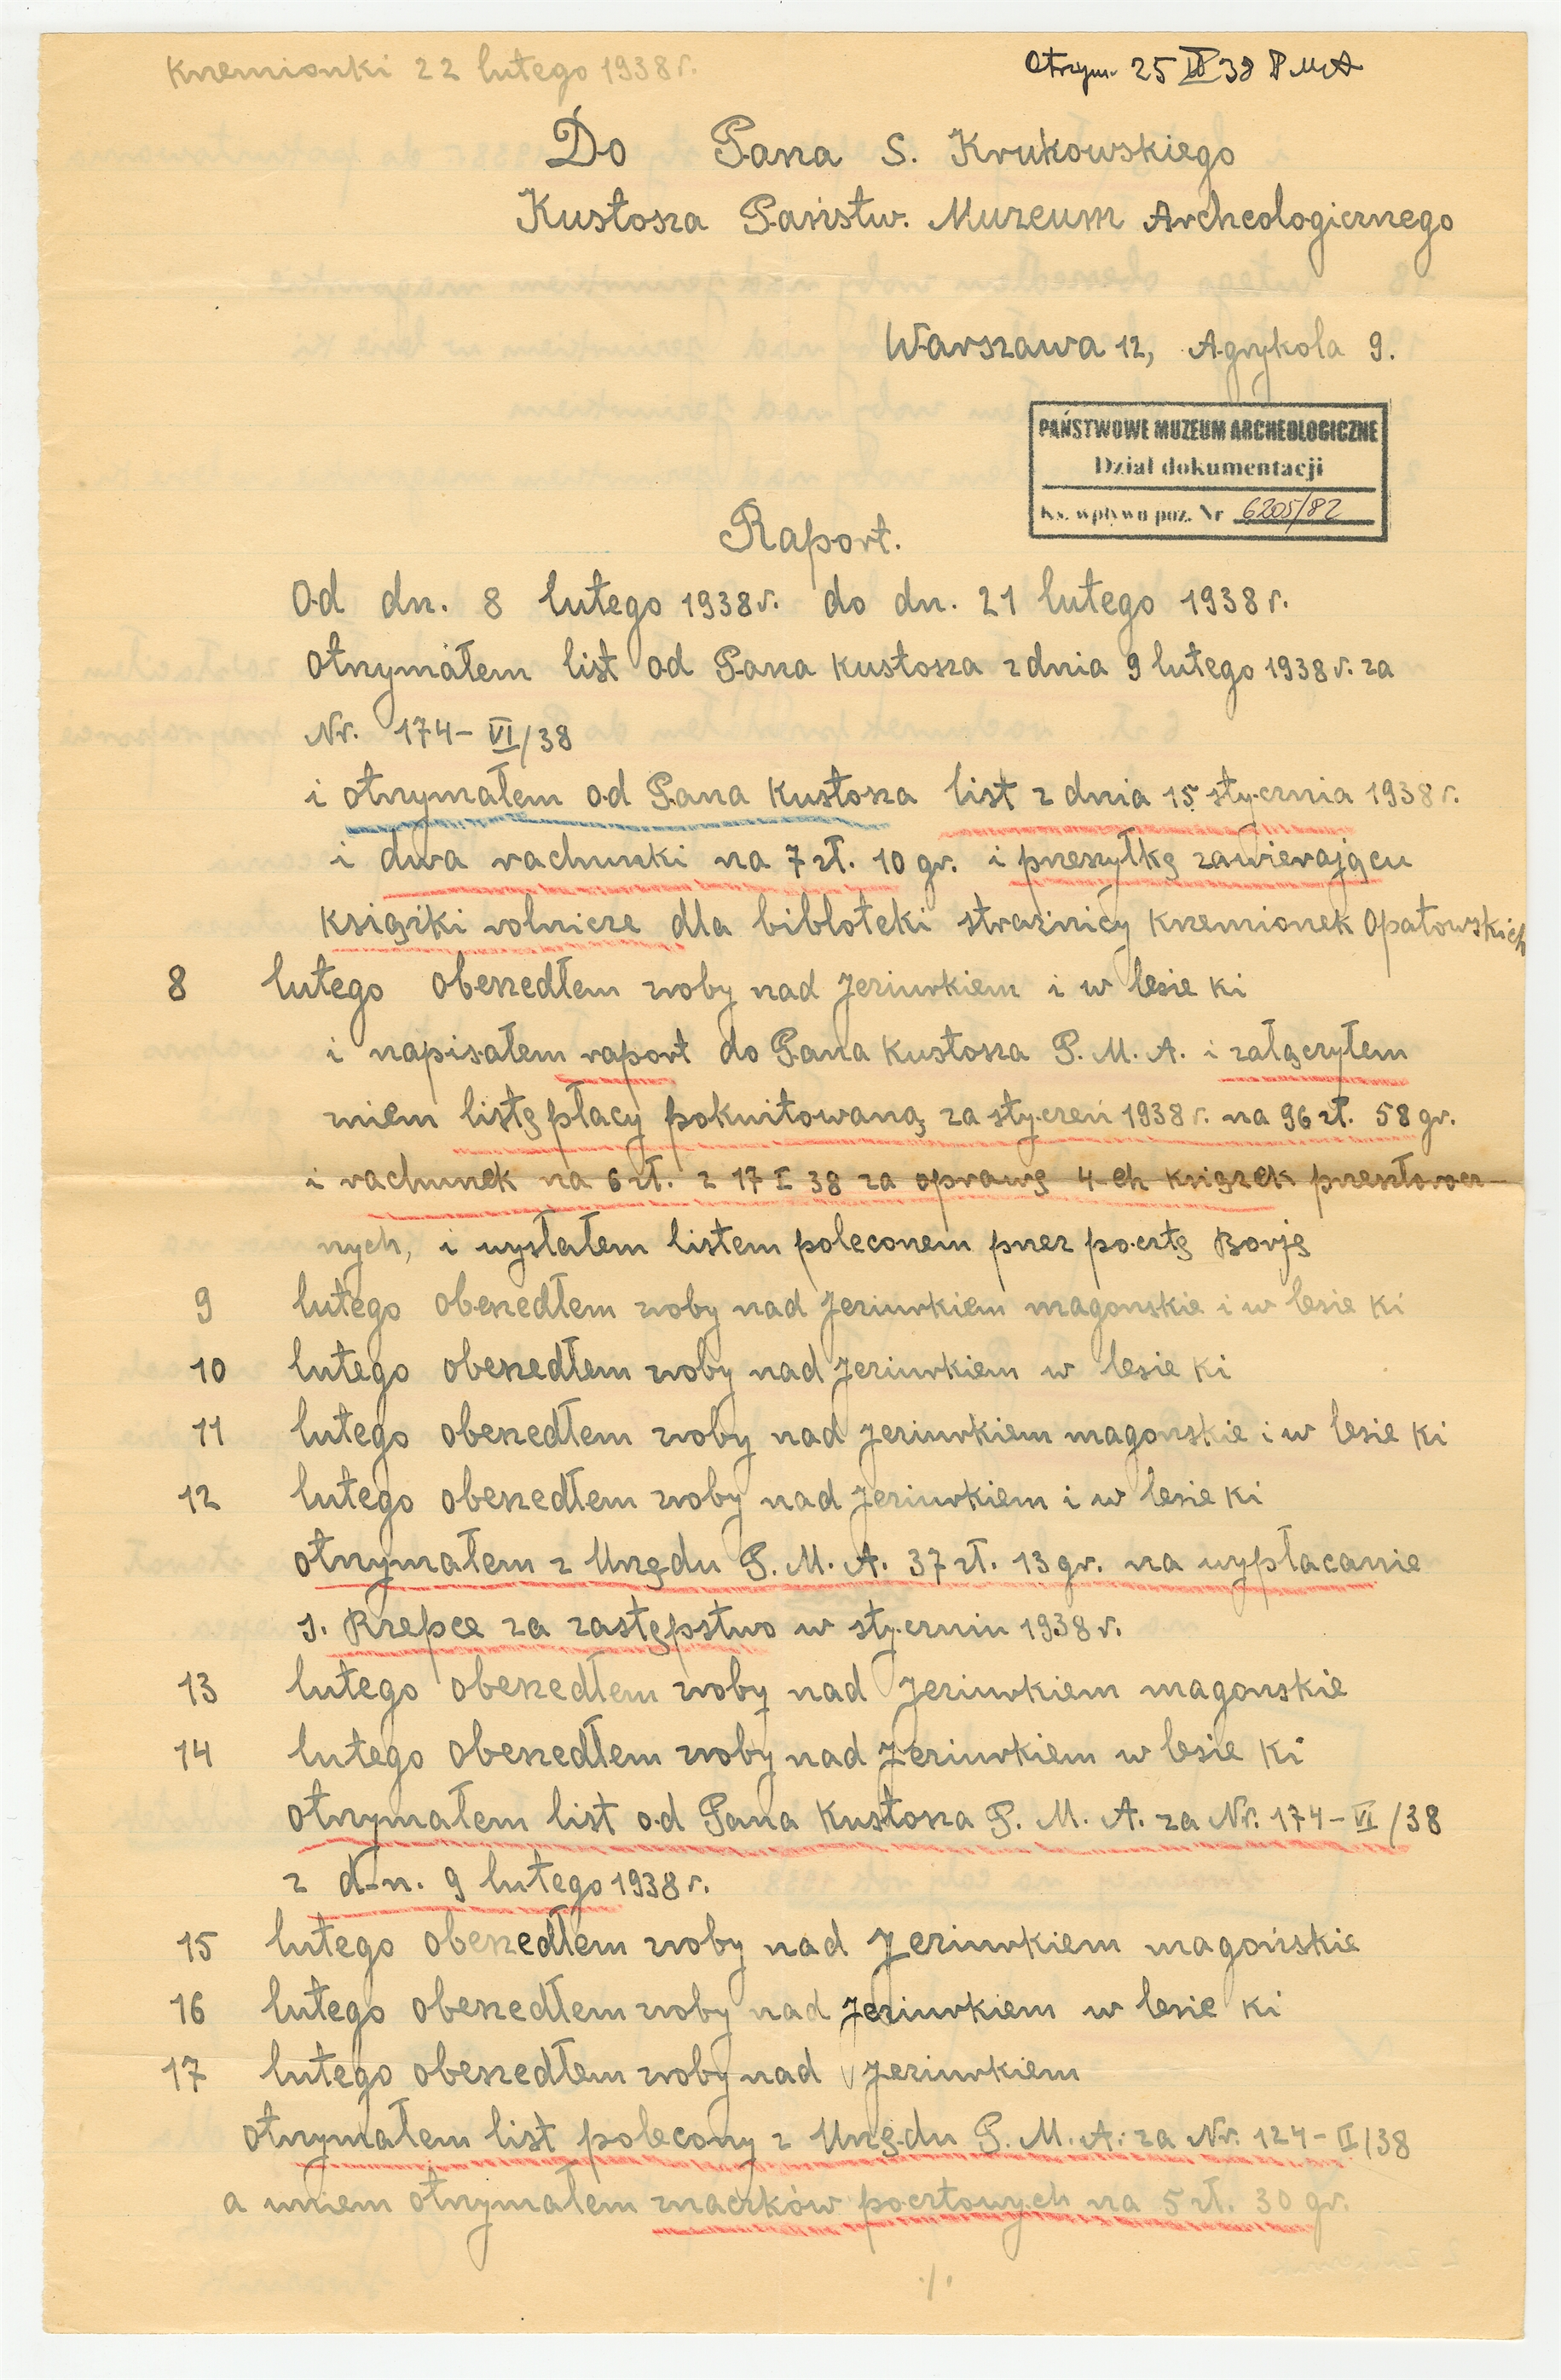 Krzemionki 22 lutego 1938 r.
Otrzym. 25 II 38 PMA
Do Pana S. Krukowskiego
Kustosza Państw. Muzeum Archeologicznego
Warszawa 12, Agrykola 9.
PAŃSTWOWE MUZEUM ARCHEOLOGICZNE
Dział dokumentacji
Ks. wpływu poz. Nr 6205/82
Raport.
Od dn. 8 lutego 1938 r. do dn. 21 lutego 1938 r.
otrzymałem list od Pana Kustosza z dnia 9 lutego 1938 r. za
Nr. 174-VI/38
i otrzymałem od Pana Kustosza list z dnia 15 stycznia 1938 r.
i dwa rachunki na 7 zł. 10 gr. i przesyłkę zawierającu
książki rolnicze dla bibloteki strażnicy Krzemionek Opatowskich
8 lutego obeszedłem zroby nad Jeziurkiem i w lesie Ki
i napisałem raport do Pana Kustosza P. M. A. i załączyłem
zniem listę płacy pokwitowaną za styczeń 1938 r. na 96 zł. 58 gr.
i rachunek na 6 zł. z 17 I 38 za oprawę 4-ch książek przesztorocz-
nych, i wysłałem listem poleconem przez pocztę Borję
9 lutego obeszedłem zroby nad Jeziurkiem magonskie i w lesie Ki
10 lutego obeszedłem zroby nad Jeziurkiem w lesie Ki
11 lutego obeszedłem zroby nad Jeziurkiem magonskie i w lesie Ki
12 lutego obeszedłem zroby nad Jeziurkiem i w lesie Ki
otrzymałem z Urzędu P. M. A. 37 zł. 13 gr. na wypłacanie
J. Rzepce za zastępstwo w styczniu 1938 r.
13 lutego obeszedłem zroby nad Jeziurkiem magonskie
14 lutego obeszedłem zroby nad Jeziurkiem w lesie Ki
otrzymałem list od Pana Kustosza P. M. A. za Nr. 174-VI/38
z dn. 9 lutego 1938 r.
15 lutego obeszedłem zroby nad Jeziurkiem magońskie
16 lutego obeszedłem zroby nad Jeziurkiem w lesie Ki
17 lutego obeszedłem zroby nad Jeziurkiem
otrzymałem list polecony z Urzędu P. M. A. za Nr. 124-II/38
a wniem otrzymałem znaczków pocztowych na 5 zł. 30 gr.
./.